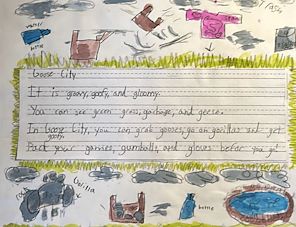 trash
water
bottle
Goose City
It is groovy, goofy, and gloomy.
You can see green grass, garbage, and geese.
In Goose City, you can grab gooses, go on gorillas and get
goofy.
Pack your gamies, gumballs, and gloves before you go!
rock
Gorilla
bottle